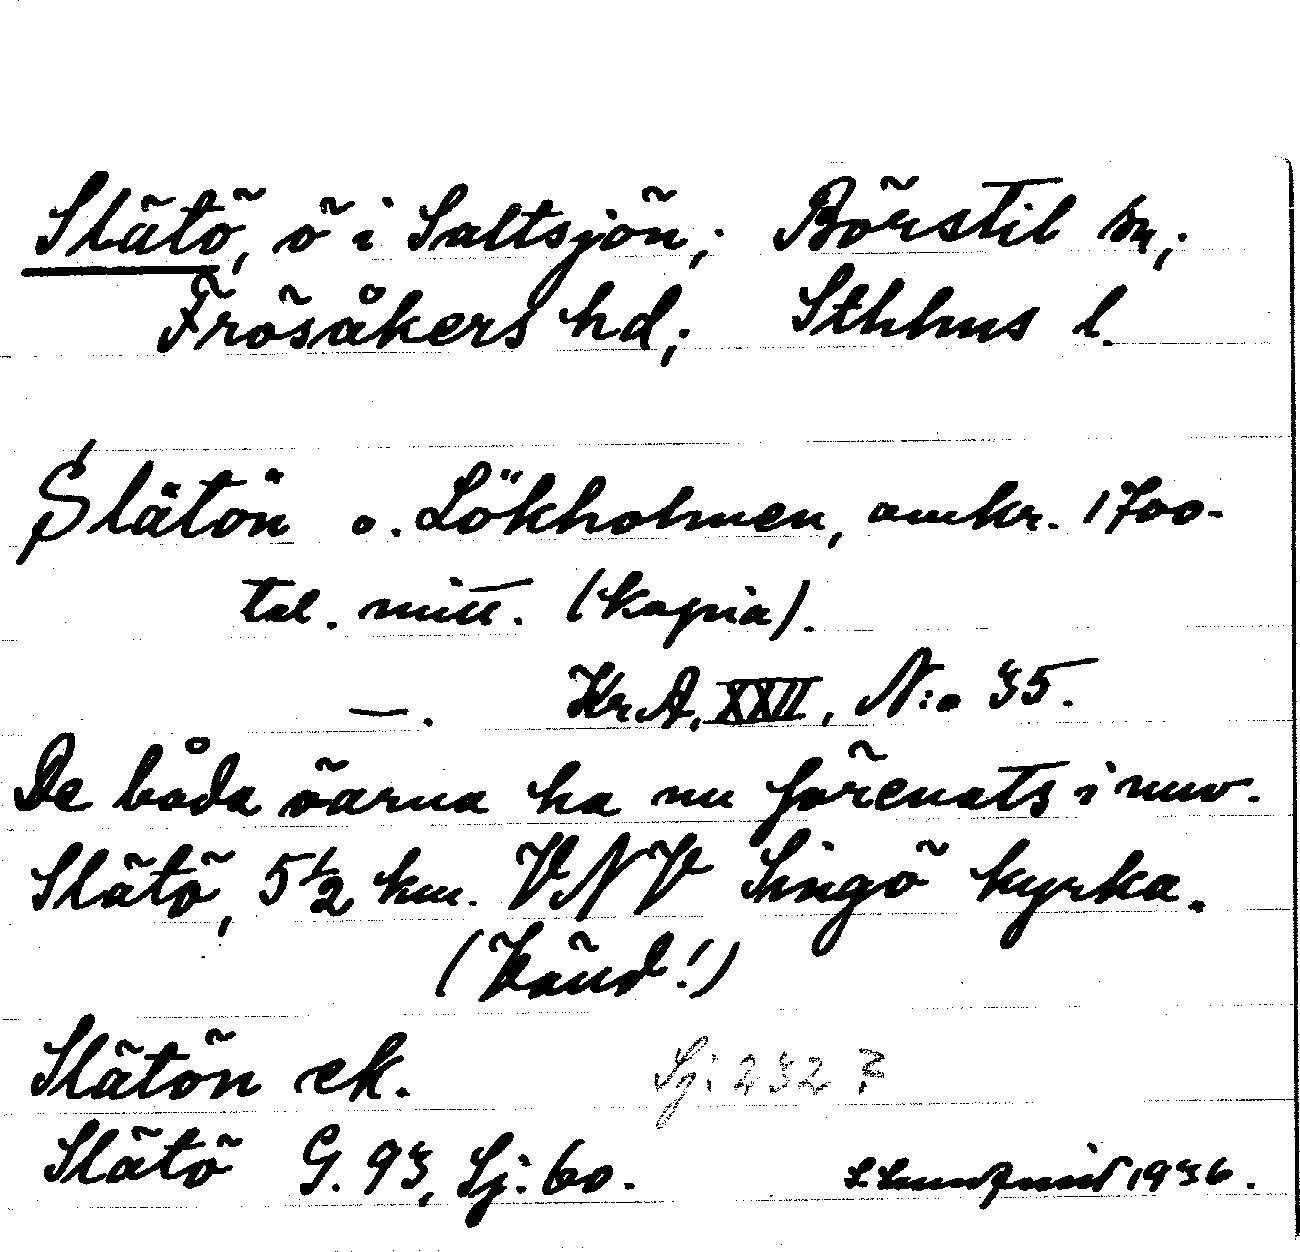 Slätö, ö i Saltsjön; Börstil sn;
Frösåkers hd; Sthlms l.
Slätön o. Lökholmen, omkr. 1700-
tal. mitt. (kopia).
—. KrA, XXII, N:o 35.
De båda öarna ha nu förenats i nuv.
Slätö, 5 1/2 km. VNV Singö kyrka.
(Känd!)
Slätön ek. Sj: 232 ?
Slätö G. 93, Sj: 60. S. Lundqvist 1936.